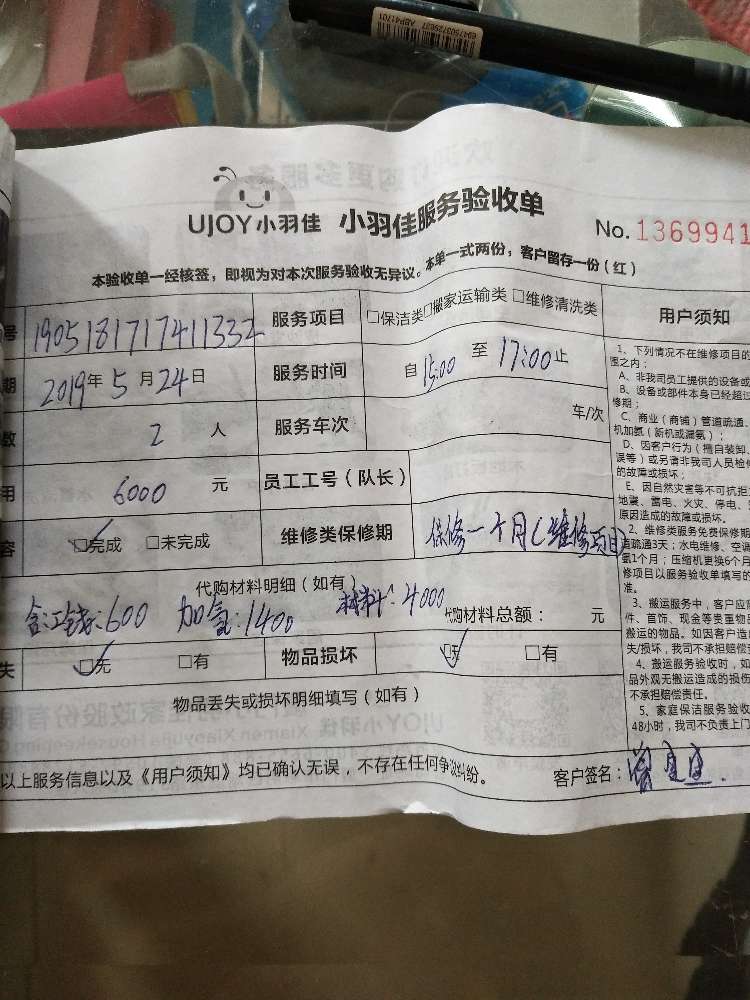 6947503729627 ABP41701
UJOY小羽佳 小羽佳服务验收单
No. 1369941
本验收单一经核签，即视为对本次服务验收无异议。本单一式两份，客户留存一份（红）
号 1905181717411332 服务项目 □保洁类□搬家运输类 □维修清洗类 用户须知
期 2019年5月24日 服务时间 自15:00 至 17:00止
数 2 人 服务车次 车/次
用 6000 元 员工工号（队长）
容 □完成 □未完成 维修类保修期 保修一个月（维修项目）
代购材料明细（如有）
工钱:600 加氢:1400 材料:4000 代购材料总额： 元
失 □无 □有 物品损坏 □无 □有
物品丢失或损坏明细填写（如有）
以上服务信息以及《用户须知》均已确认无误，不存在任何争议纠纷。 客户签名：
1、下列情况不在维修项目的
围之内；
A、非我司员工提供的设备或
B、设备或部件本身已经超过
修期；
C、商业（商铺）管道疏通、
机加氨（新机或漏氨）；
D、因客户行为（擅自装卸、
误等）或另请非我司人员检修
的故障或损坏；
E、因自然灾害等不可抗拒
地震、雷电、火灾、停电、
原因造成的故障或损坏。
2、维修类服务免费保修期
道疏通3天；水电维修、空调
氨1个月；压缩机更换6个月
修项目以服务验收单填写的
准。
3、搬运服务中，客户应
件、首饰、现金等贵重物品
搬运的物品。如因客户造
失/损坏，我司不承担赔偿责
4、搬运服务验收时，如
品外观无搬运造成的损伤
不承担赔偿责任。
5、家庭保洁服务验收
48小时，我司不负责上门